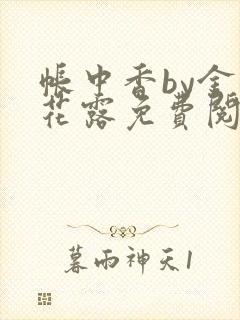 帳中香by金
花露免費閱
暮雨神天1